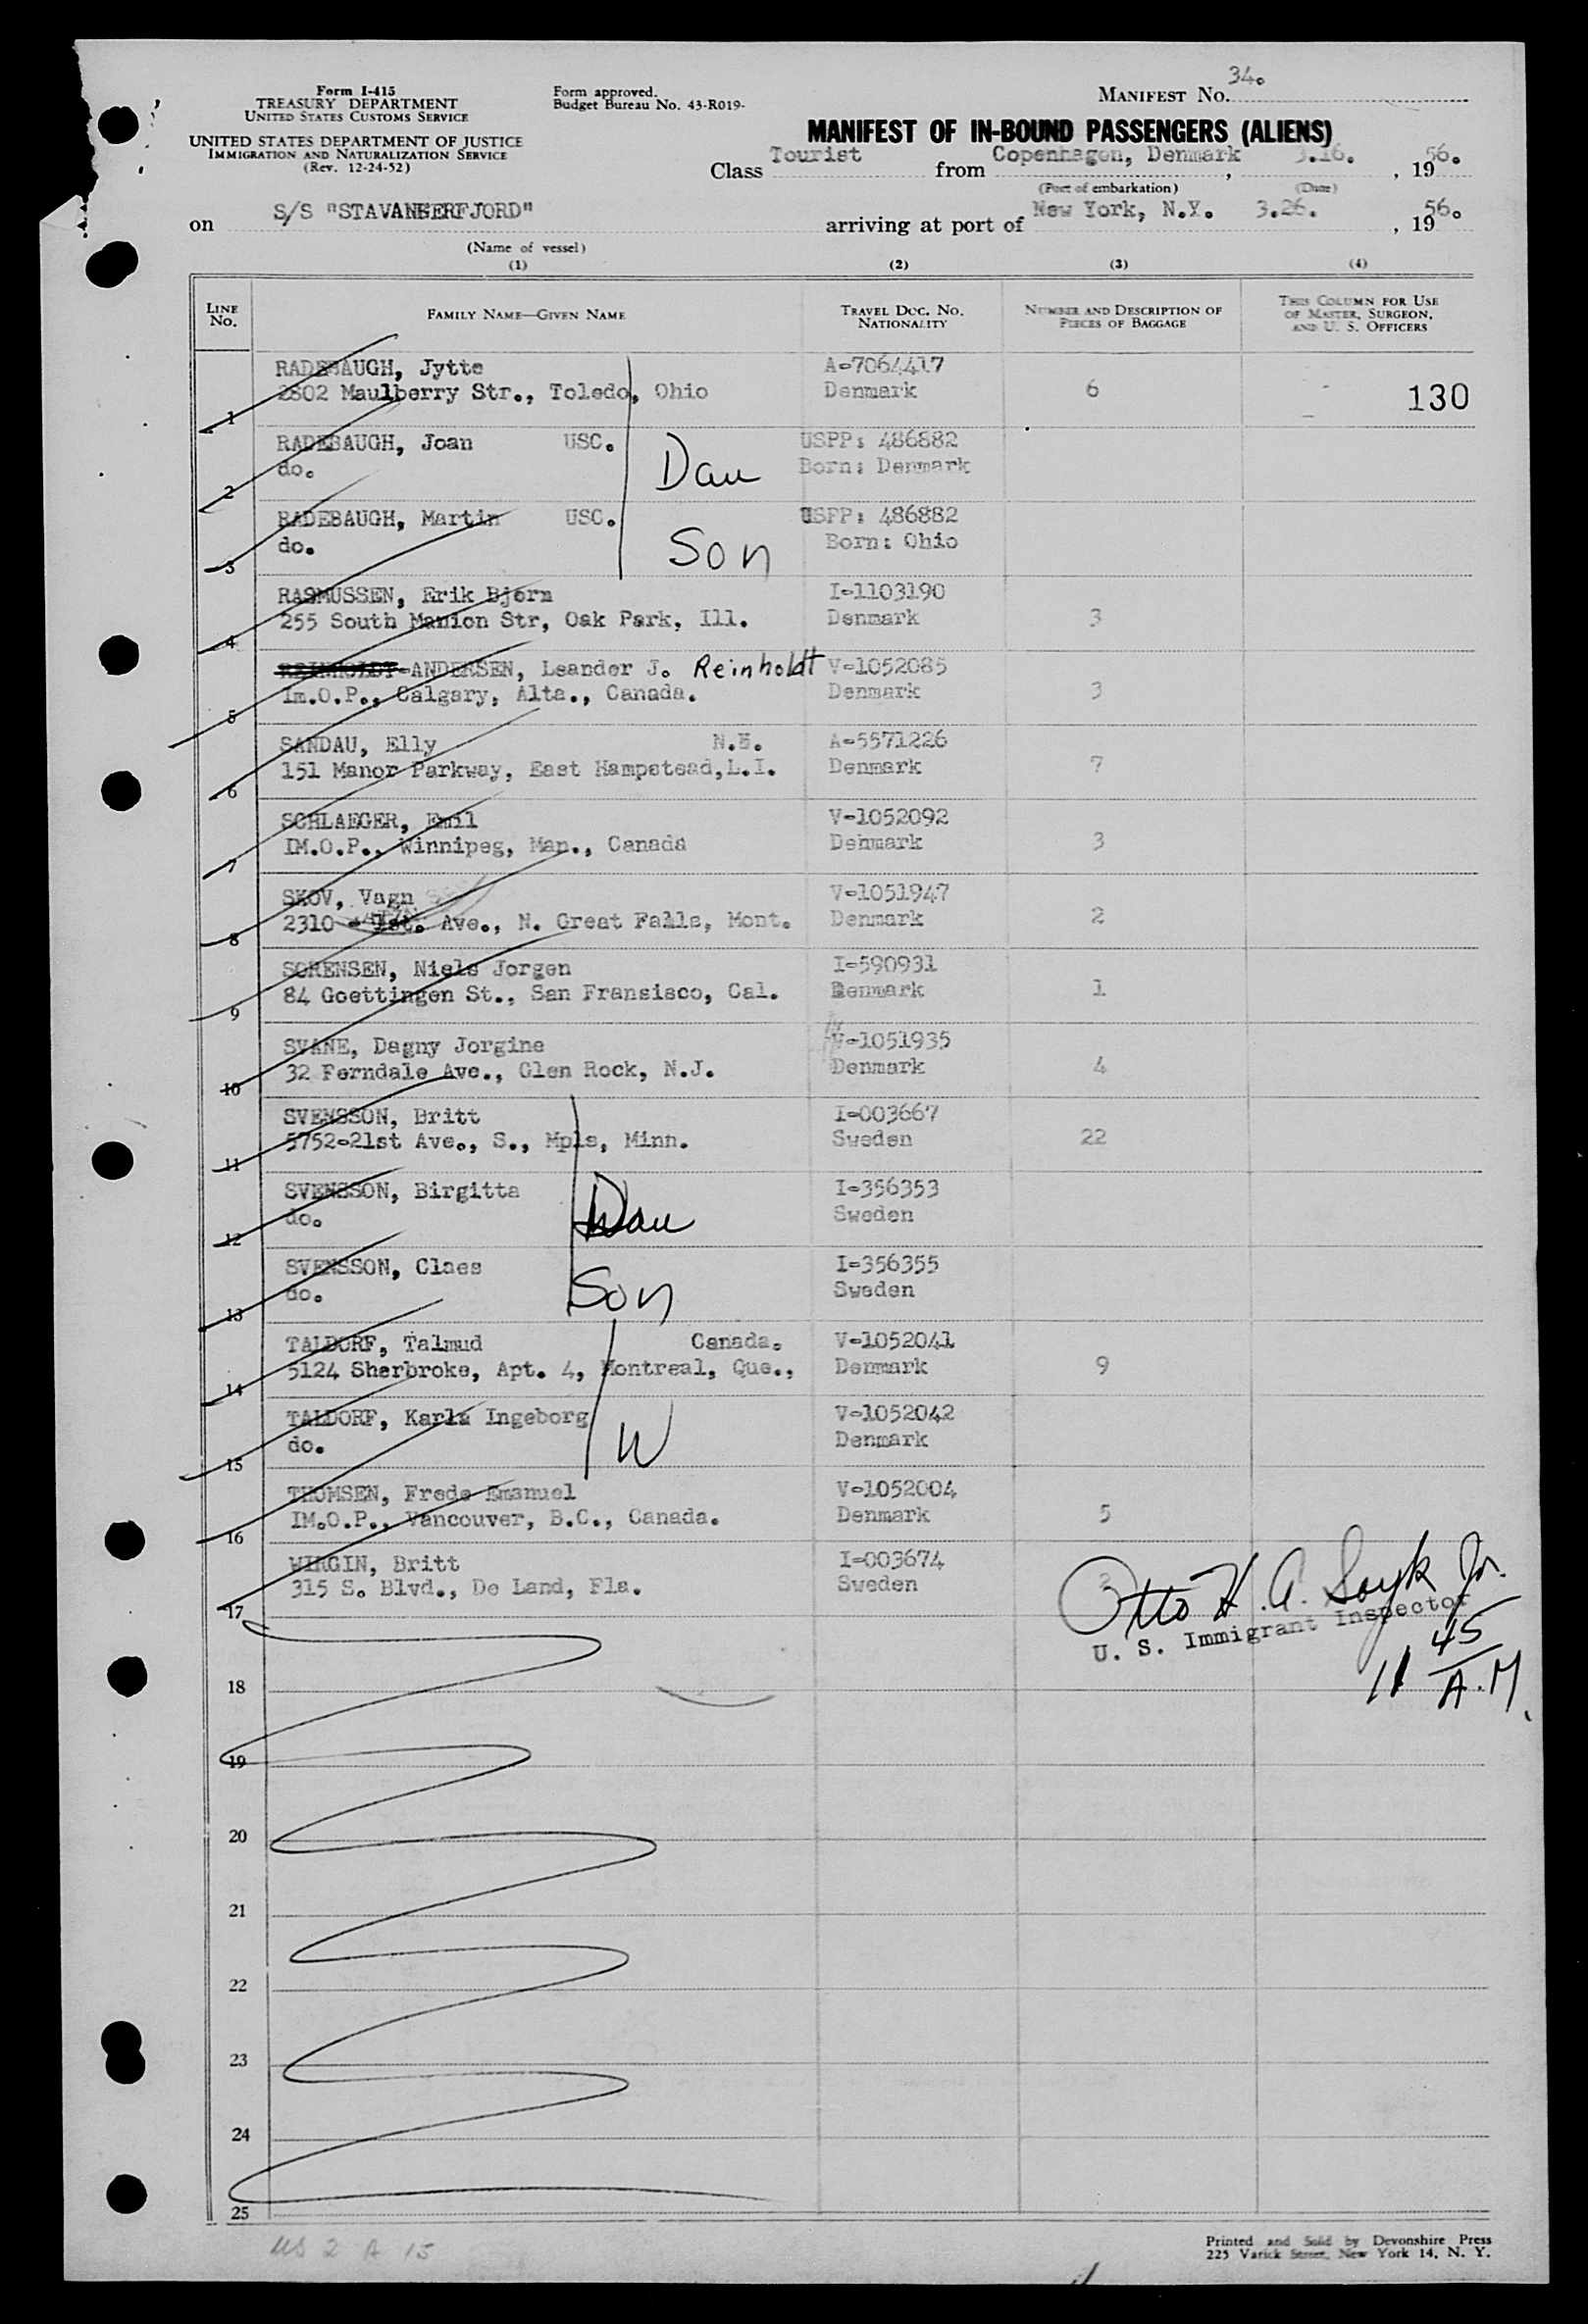 Form I-415
TREASURY DEPARTMENT
UNITED STATES CUSTOMS SERVICE
UNITED STATES DEPARTMENT OF JUSTICE
IMMIGRATION AND NATURALIZATION SERVICE
(Rev. 12-24-52)
Form approved.
Budget Bureau No. 43-R019-
MANIFEST NO. 34.
MANIFEST OF IN-BOUND PASSENGERS (ALIENS)
Class Tourist from Copenhagen, Denmark, 3.16., 1956.
(Port of embarkation) (Date)
on S/S "STAVANGERFJORD" arriving at port of New York, N.Y. 3.26., 1956.
(Name of vessel)
(1) (2) (3) (4)
LINE NO. FAMILY NAME—GIVEN NAME TRAVEL DOC. NO. NATIONALITY NUMBER AND DESCRIPTION OF PIECES OF BAGGAGE THIS COLUMN FOR USE OF MASTER, SURGEON, AND U. S. OFFICERS
RADEBAUGH, Jytte A-7064417
1 2802 Maulberry Str., Toledo, Ohio Denmark 6 130
RADEBAUGH, Joan USC. USPP: 486882
2 do. Dau Born: Denmark
RADEBAUGH, Martin USC. USPP: 486882
3 do. Son Born: Ohio
RASMUSSEN, Erik Bjorn I-1103190
4 255 South Manion Str, Oak Park, Ill. Denmark 3
REINHOLDT-ANDERSEN, Leander J. Reinholdt V-1052085
5 Im.O.P., Calgary, Alta., Canada. Denmark 3
SANDAU, Elly A-5571226
6 151 Manor Parkway, East Hampstead,L.I. Denmark 7
SCHLAEGER, Emil V-1052092
7 IM.O.P., Winnipeg, Man., Canada Denmark 3
SKOV, Vagn V-1051947
8 2310 - 1st. Ave., N. Great Falls, Mont. Denmark 2
SORENSEN, Niels Jorgen I-590931
9 84 Goettingen St., San Fransisco, Cal. Denmark 1
SVANE, Dagny Jorgine V-1051935
10 32 Ferndale Ave., Glen Rock, N.J. Denmark 4
SVENSSON, Britt I-003667
11 5752-21st Ave., S., Mpls, Minn. Sweden 22
SVENSSON, Birgitta I-356353
12 do. Dau Sweden
SVENSSON, Claes I-356355
13 do. Son Sweden
TALDORF, Talmud Canada. V-1052041
14 5124 Sherbroke, Apt. 4, Montreal, Que., Denmark 9
TALDORF, Karla Ingeborg V-1052042
15 do. W Denmark
THOMSEN, Frede Emanuel V-1052004
16 IM.O.P., Vancouver, B.C., Canada. Denmark 5
WIRGIN, Britt I-003674
17 315 S. Blvd., De Land, Fla. Sweden
Otto H. A. Sayk Jr.
U. S. Immigrant Inspector
11 45 A.M.
18
19
20
21
22
23
24
25
US 2 A 15
Printed and Sold by Devonshire Press
225 Varick Street, New York 14, N. Y.